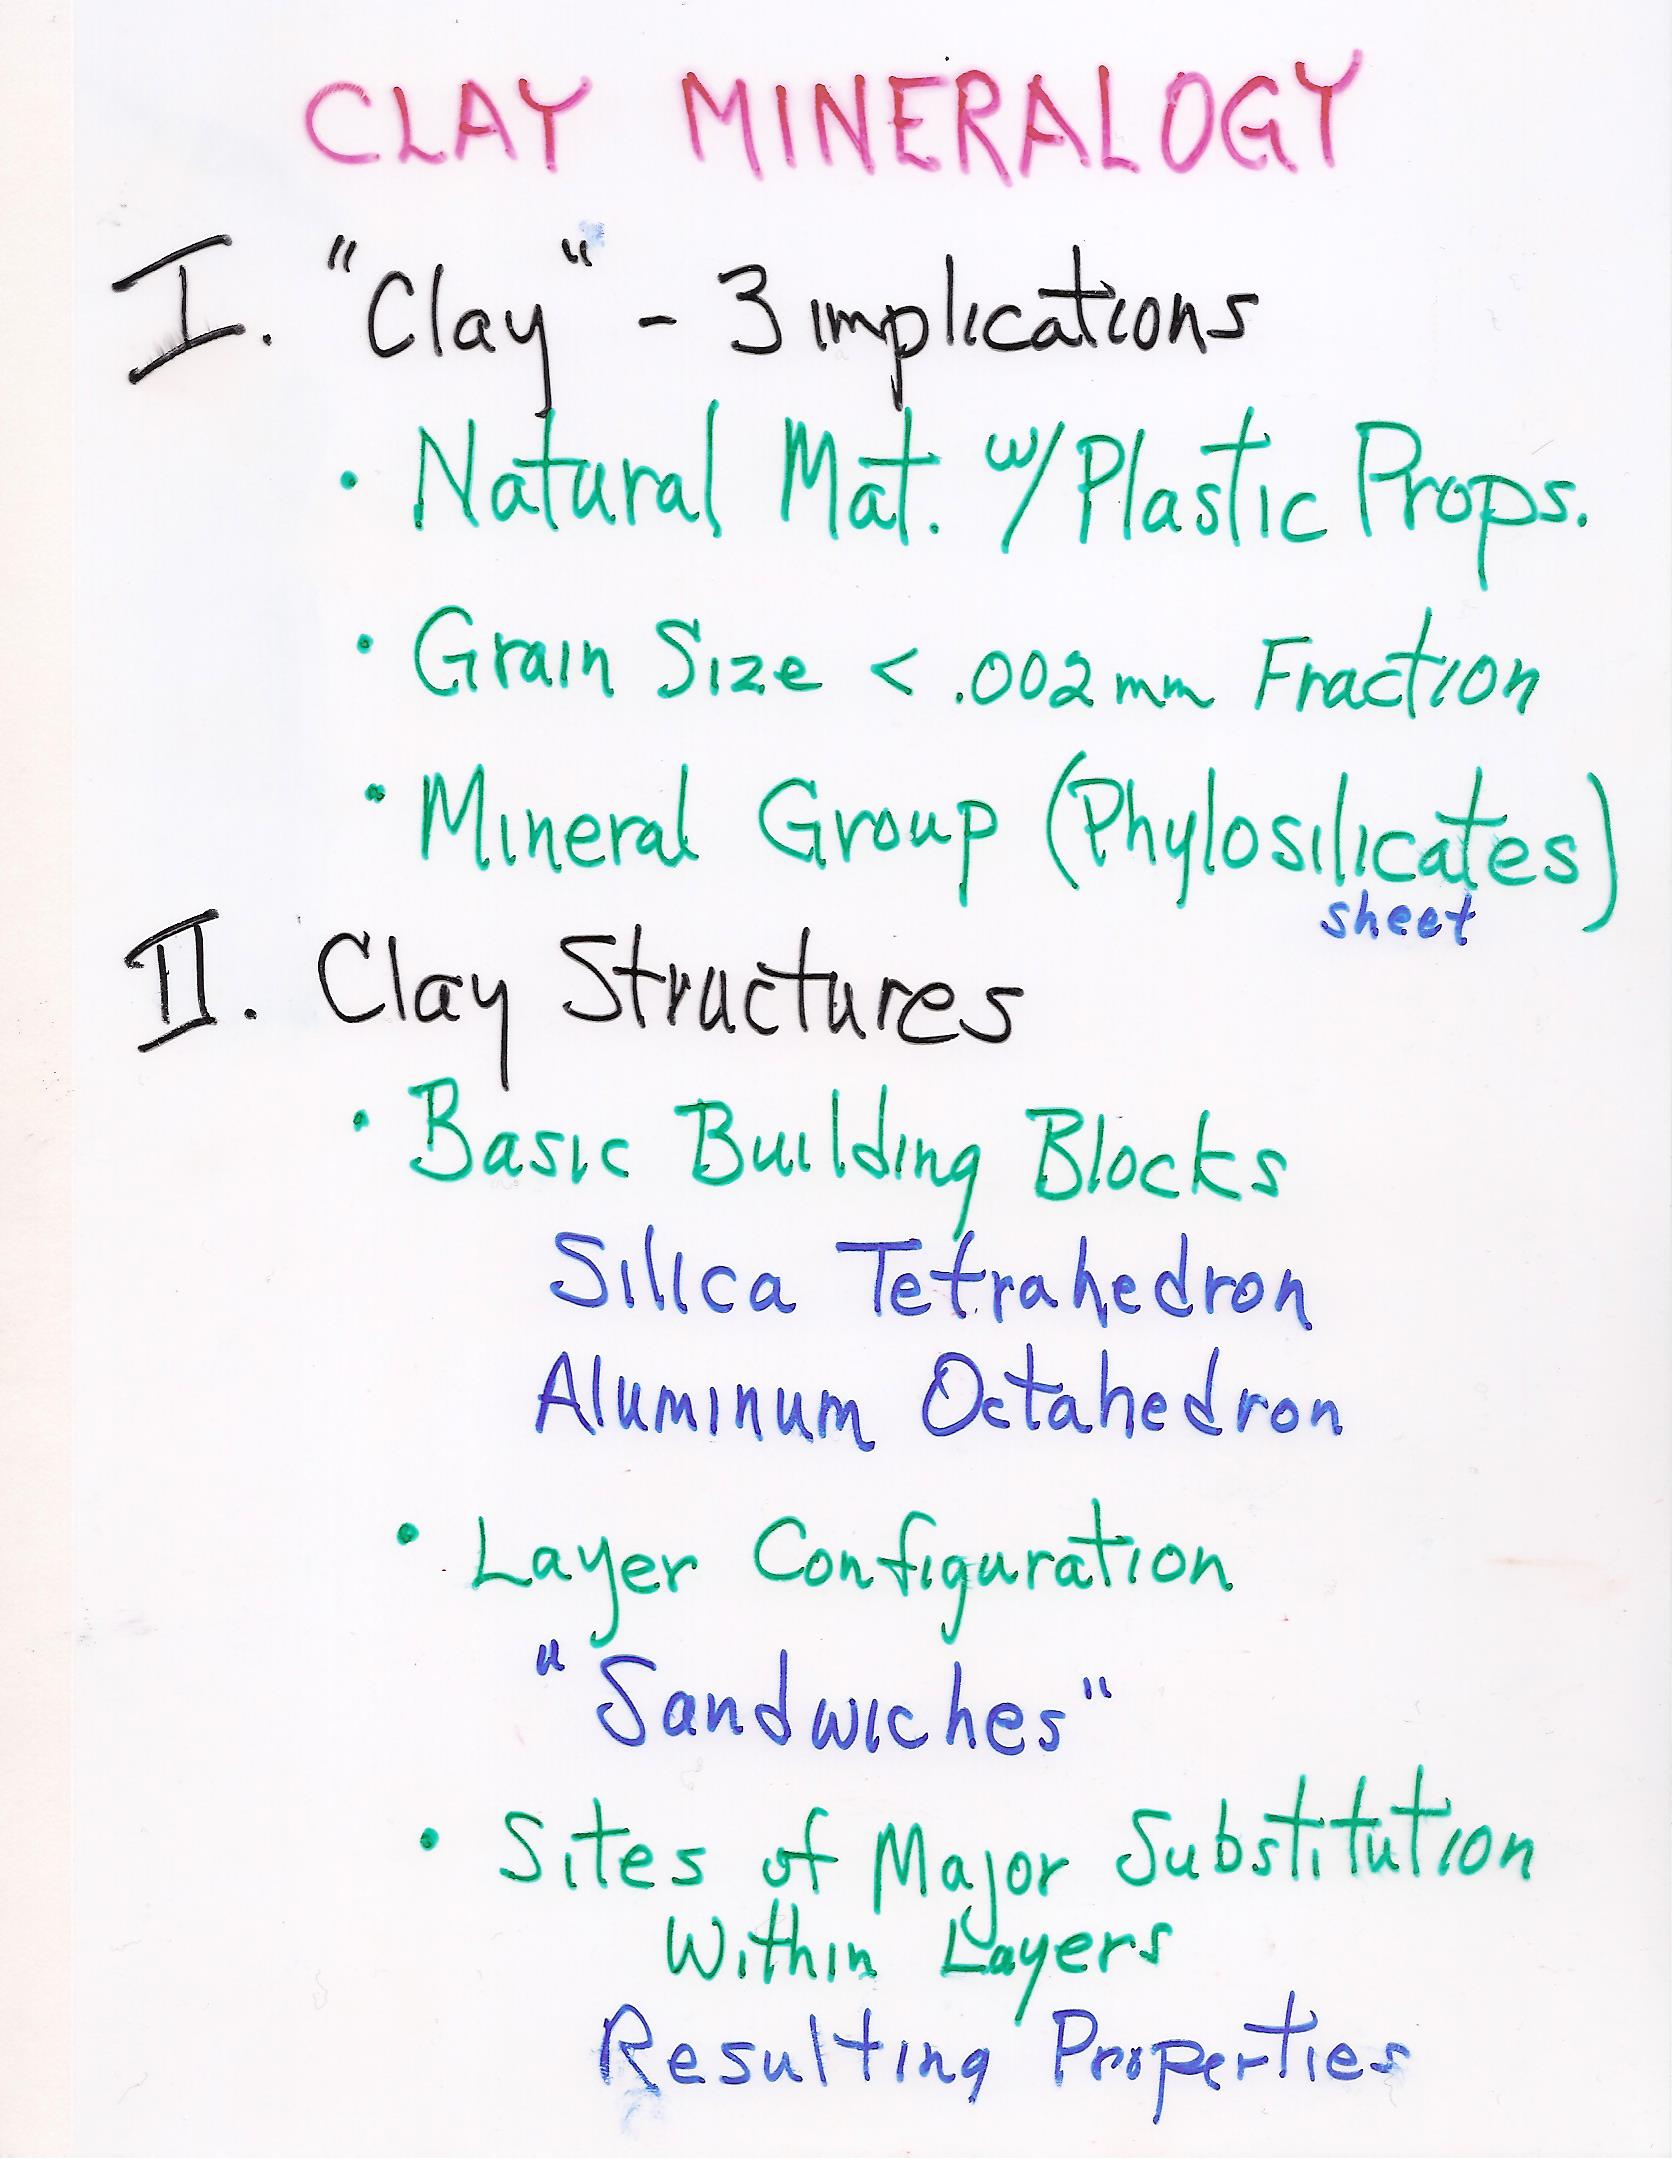 CLAY MINERALOGY
I. "Clay" - 3 implications
• Natural Mat. w/Plastic Props.
• Grain Size < .002mm Fraction
• Mineral Group (Phylosilicates)
sheet
II. Clay Structures
• Basic Building Blocks
Silica Tetrahedron
Aluminum Octahedron
• Layer Configuration
"Sandwiches"
• Sites of Major Substitution
Within Layers
Resulting Properties